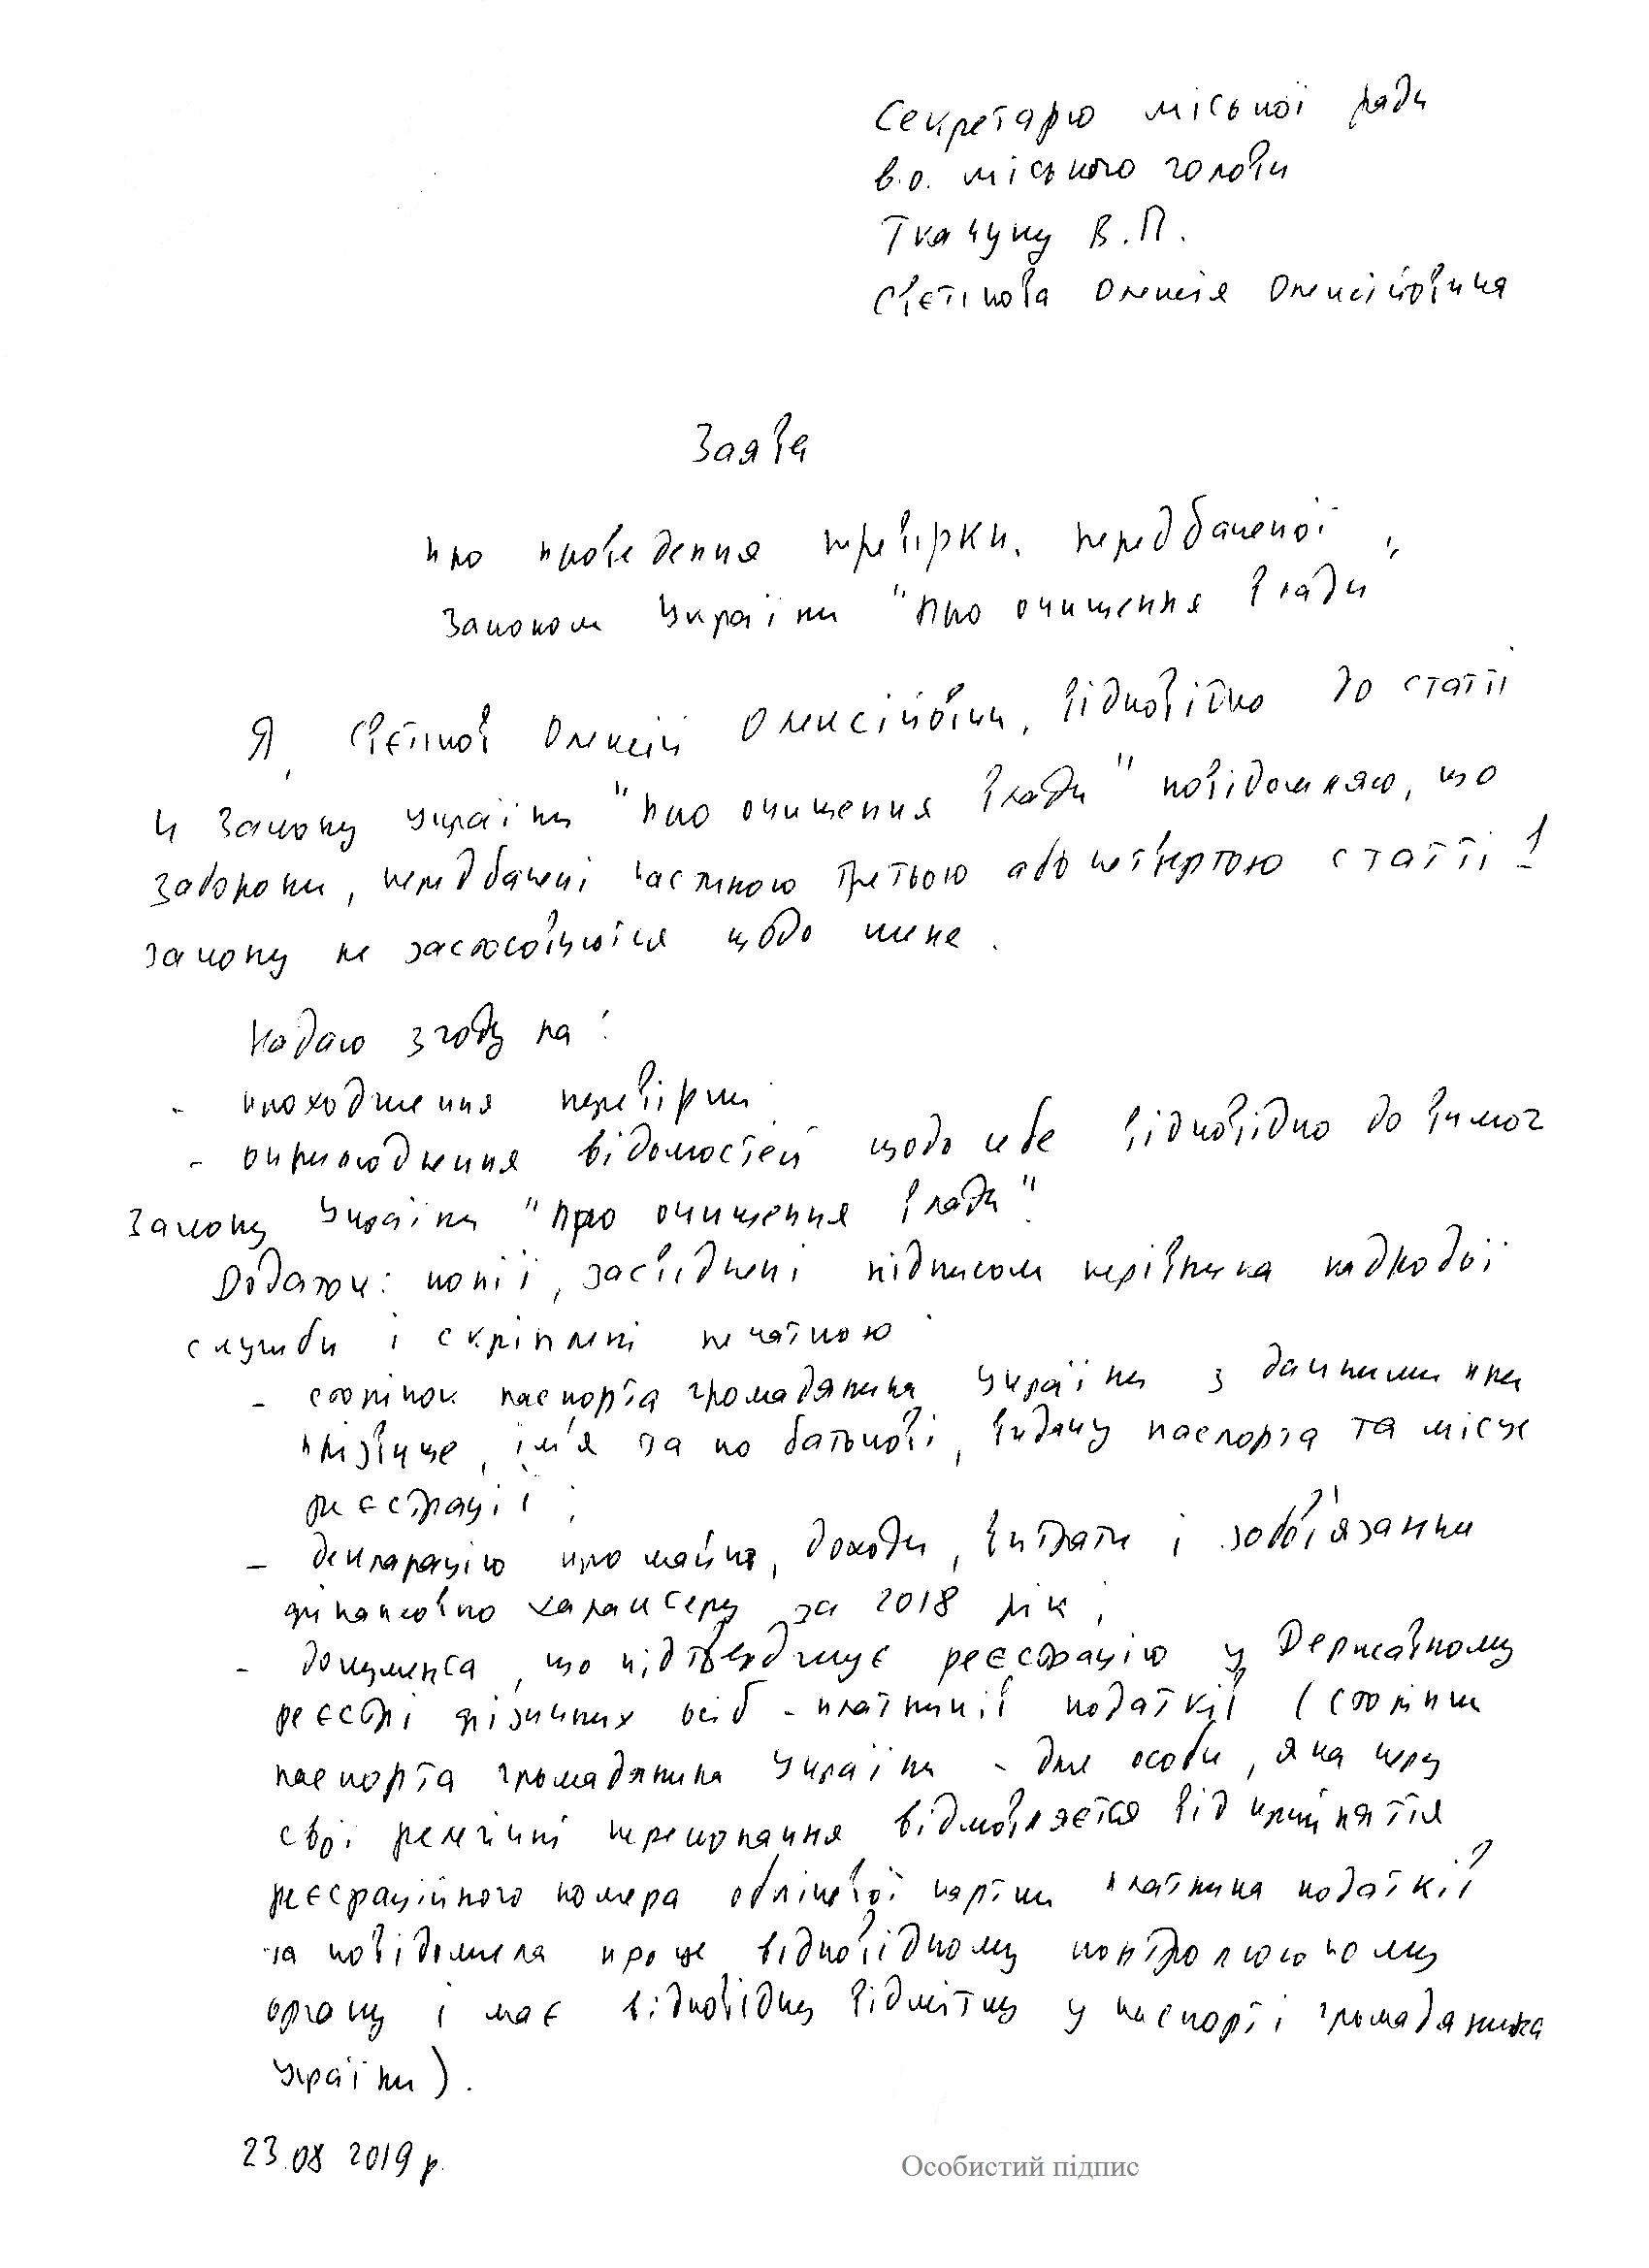 Секретарю міської ради
в.о. міського голови
Ткачуку В.П.
Свєтікова Олексія Олексійовича
Заява
про проведення перевірки, передбаченої
Законом України "Про очищення влади"
Я, Свєтіков Олексій Олексійович, відповідно до статті
4 Закону України "Про очищення влади" повідомляю, що
заборони, передбачені частиною третьою або четвертою статті 1
Закону не застосовуються щодо мене.
Надаю згоду на:
- проходження перевірки
- оприлюднення відомостей щодо себе відповідно до вимог
Закону України "Про очищення влади".
Додатки: копії, засвідчені підписом керівника
служби і скріплені печаткою
- сторінок паспорта громадянина України з даними про
прізвище, ім'я та по батькові, видачу паспорта та місце
реєстрації;
- декларацію про майно, доходи, витрати і зобов'язання
фінансового характеру за 2018 рік;
- документа, що підтверджує реєстрацію у Державному
реєстрі фізичних осіб - платників податків (сторінки
паспорта громадянина України - для особи, яка через
свої релігійні переконання відмовляється від прийняття
реєстраційного номера облікової картки платника податків
та повідомила про це відповідному контролюючому
органу і має відповідну відмітку у паспорті громадянина
України).
23.08 2019 р.
Особистий підпис